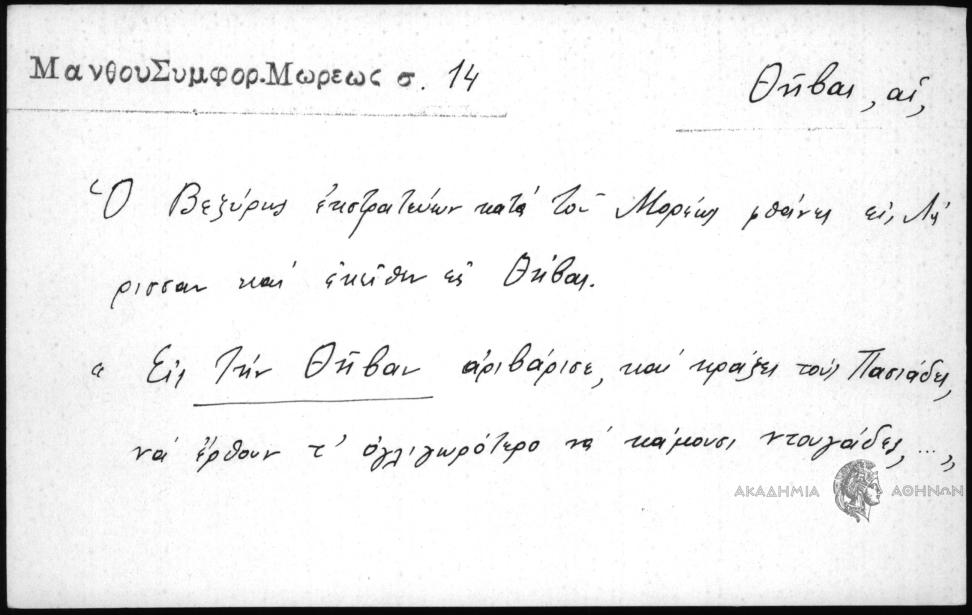 ΜανθουΣυμφορ.Μωρεως σ. 14
Θῆβαι, αἱ,
Ὁ Βεζύρης ἐκστρατεύων κατά τοῦ Μορέως φθάνει εἰς Λά
ρισσαν καί ἐκεῖθεν εἰς Θήβας.
" Εἰς τήν Θῆβαν ἀριβάρισε, καί κράζει τούς Πασιάδες,
νά ἔρθουν τ' ὀγλιγωρότερο νά κάμουσι ντουγάδες, ...,,
ΑΚΑΔΗΜΙΑ ΑΘΗΝΩΝ